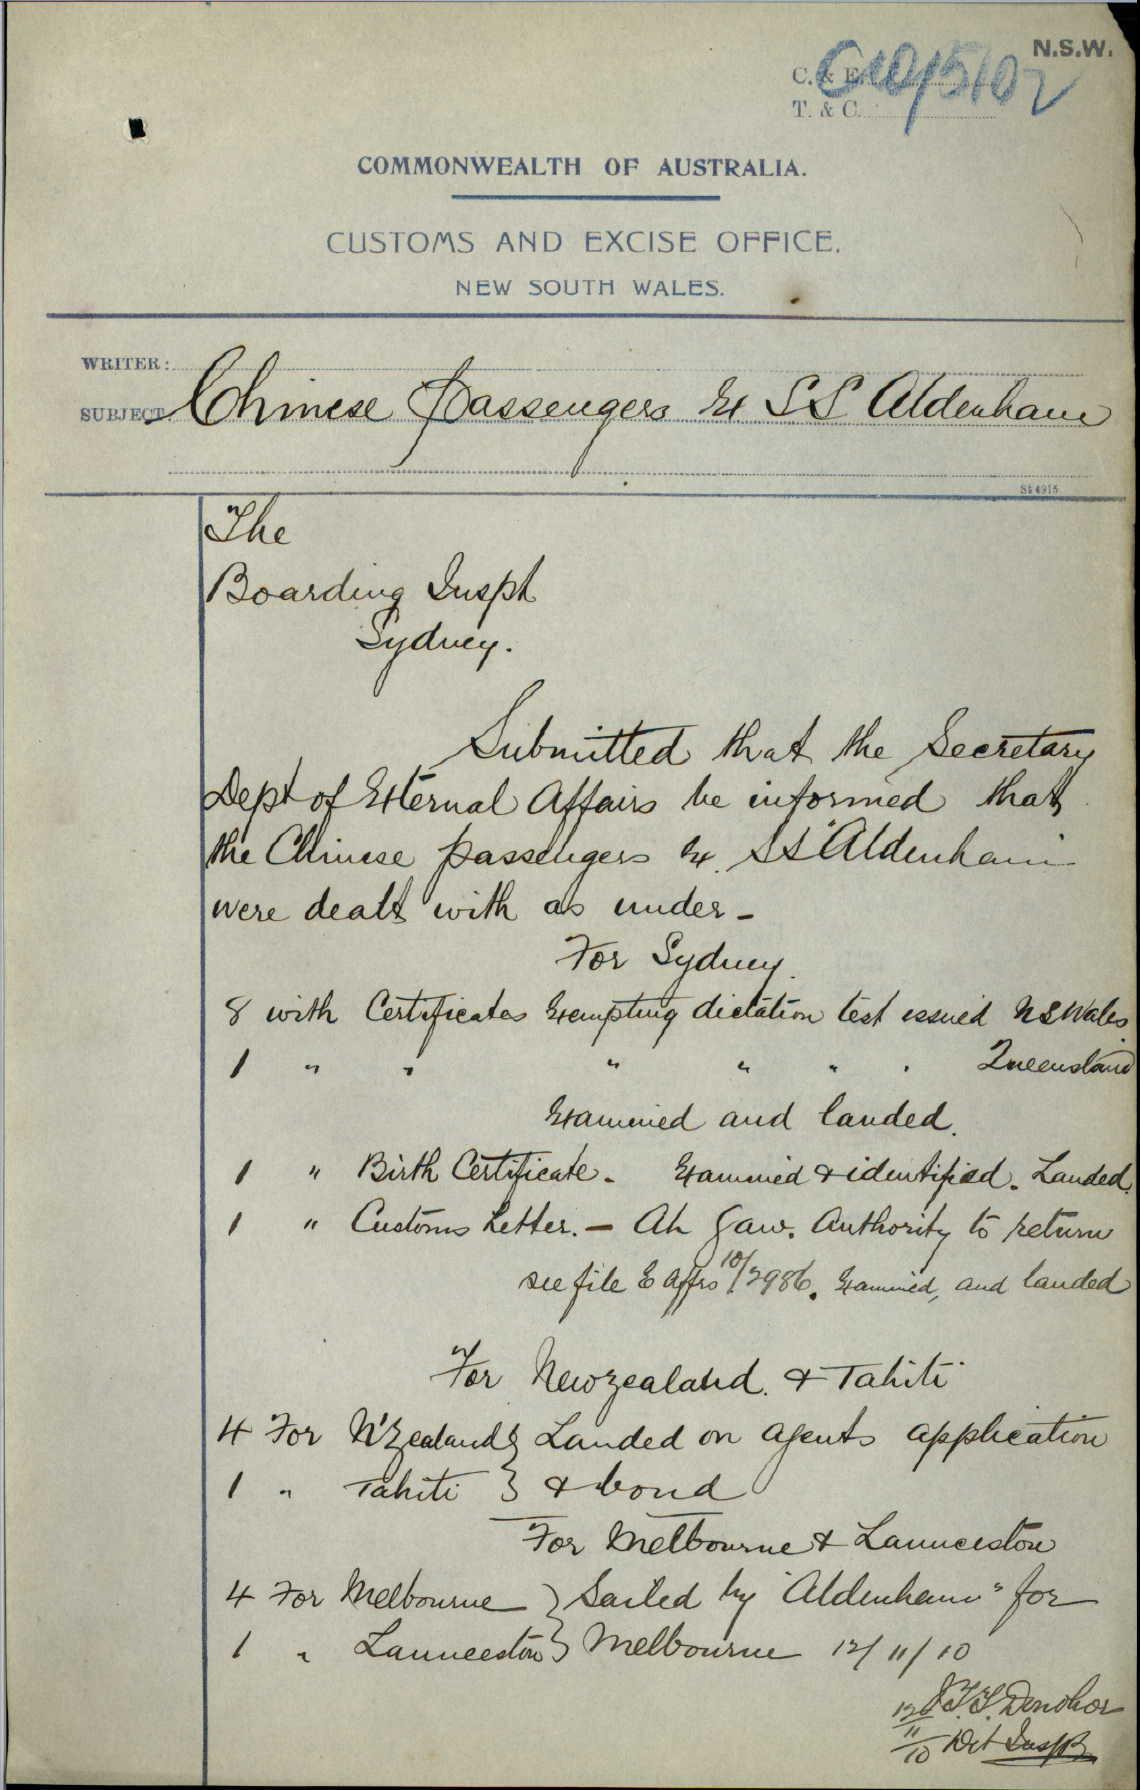 N.S.W.
C. & E. C10/5102
T. & C.
COMMONWEALTH OF AUSTRALIA.
CUSTOMS AND EXCISE OFFICE.
NEW SOUTH WALES.
WRITER:
SUBJECT Chinese Passengers Ex SS Aldenham
St 4915
The
Boarding Inspt
Sydney.
Submitted that the Secretary
Dept of External Affairs be informed that
the Chinese passengers ex. SS "Aldenham
were dealt with as under -
For Sydney.
8 with Certificates Exempting dictation test issued N S Wales
1 " " " " " " Queensland
Examined and landed.
1 " Birth Certificate. Examined & identified. Landed.
1 " Customs Letter. - Ah Gaw. Authority to return
see file E Affrs 10/2986. Examined, and landed
For Newzealand. & Tahiti
4 For N'Zealand } Landed on agents application
1 " Tahiti } & bond
For Melbourne & Launceston
4 For Melbourne } Sailed by "Aldenham" for
1 " Launceston } Melbourne 12/11/10
J.T.T. Donohoe
12/11/10 Det Inspr